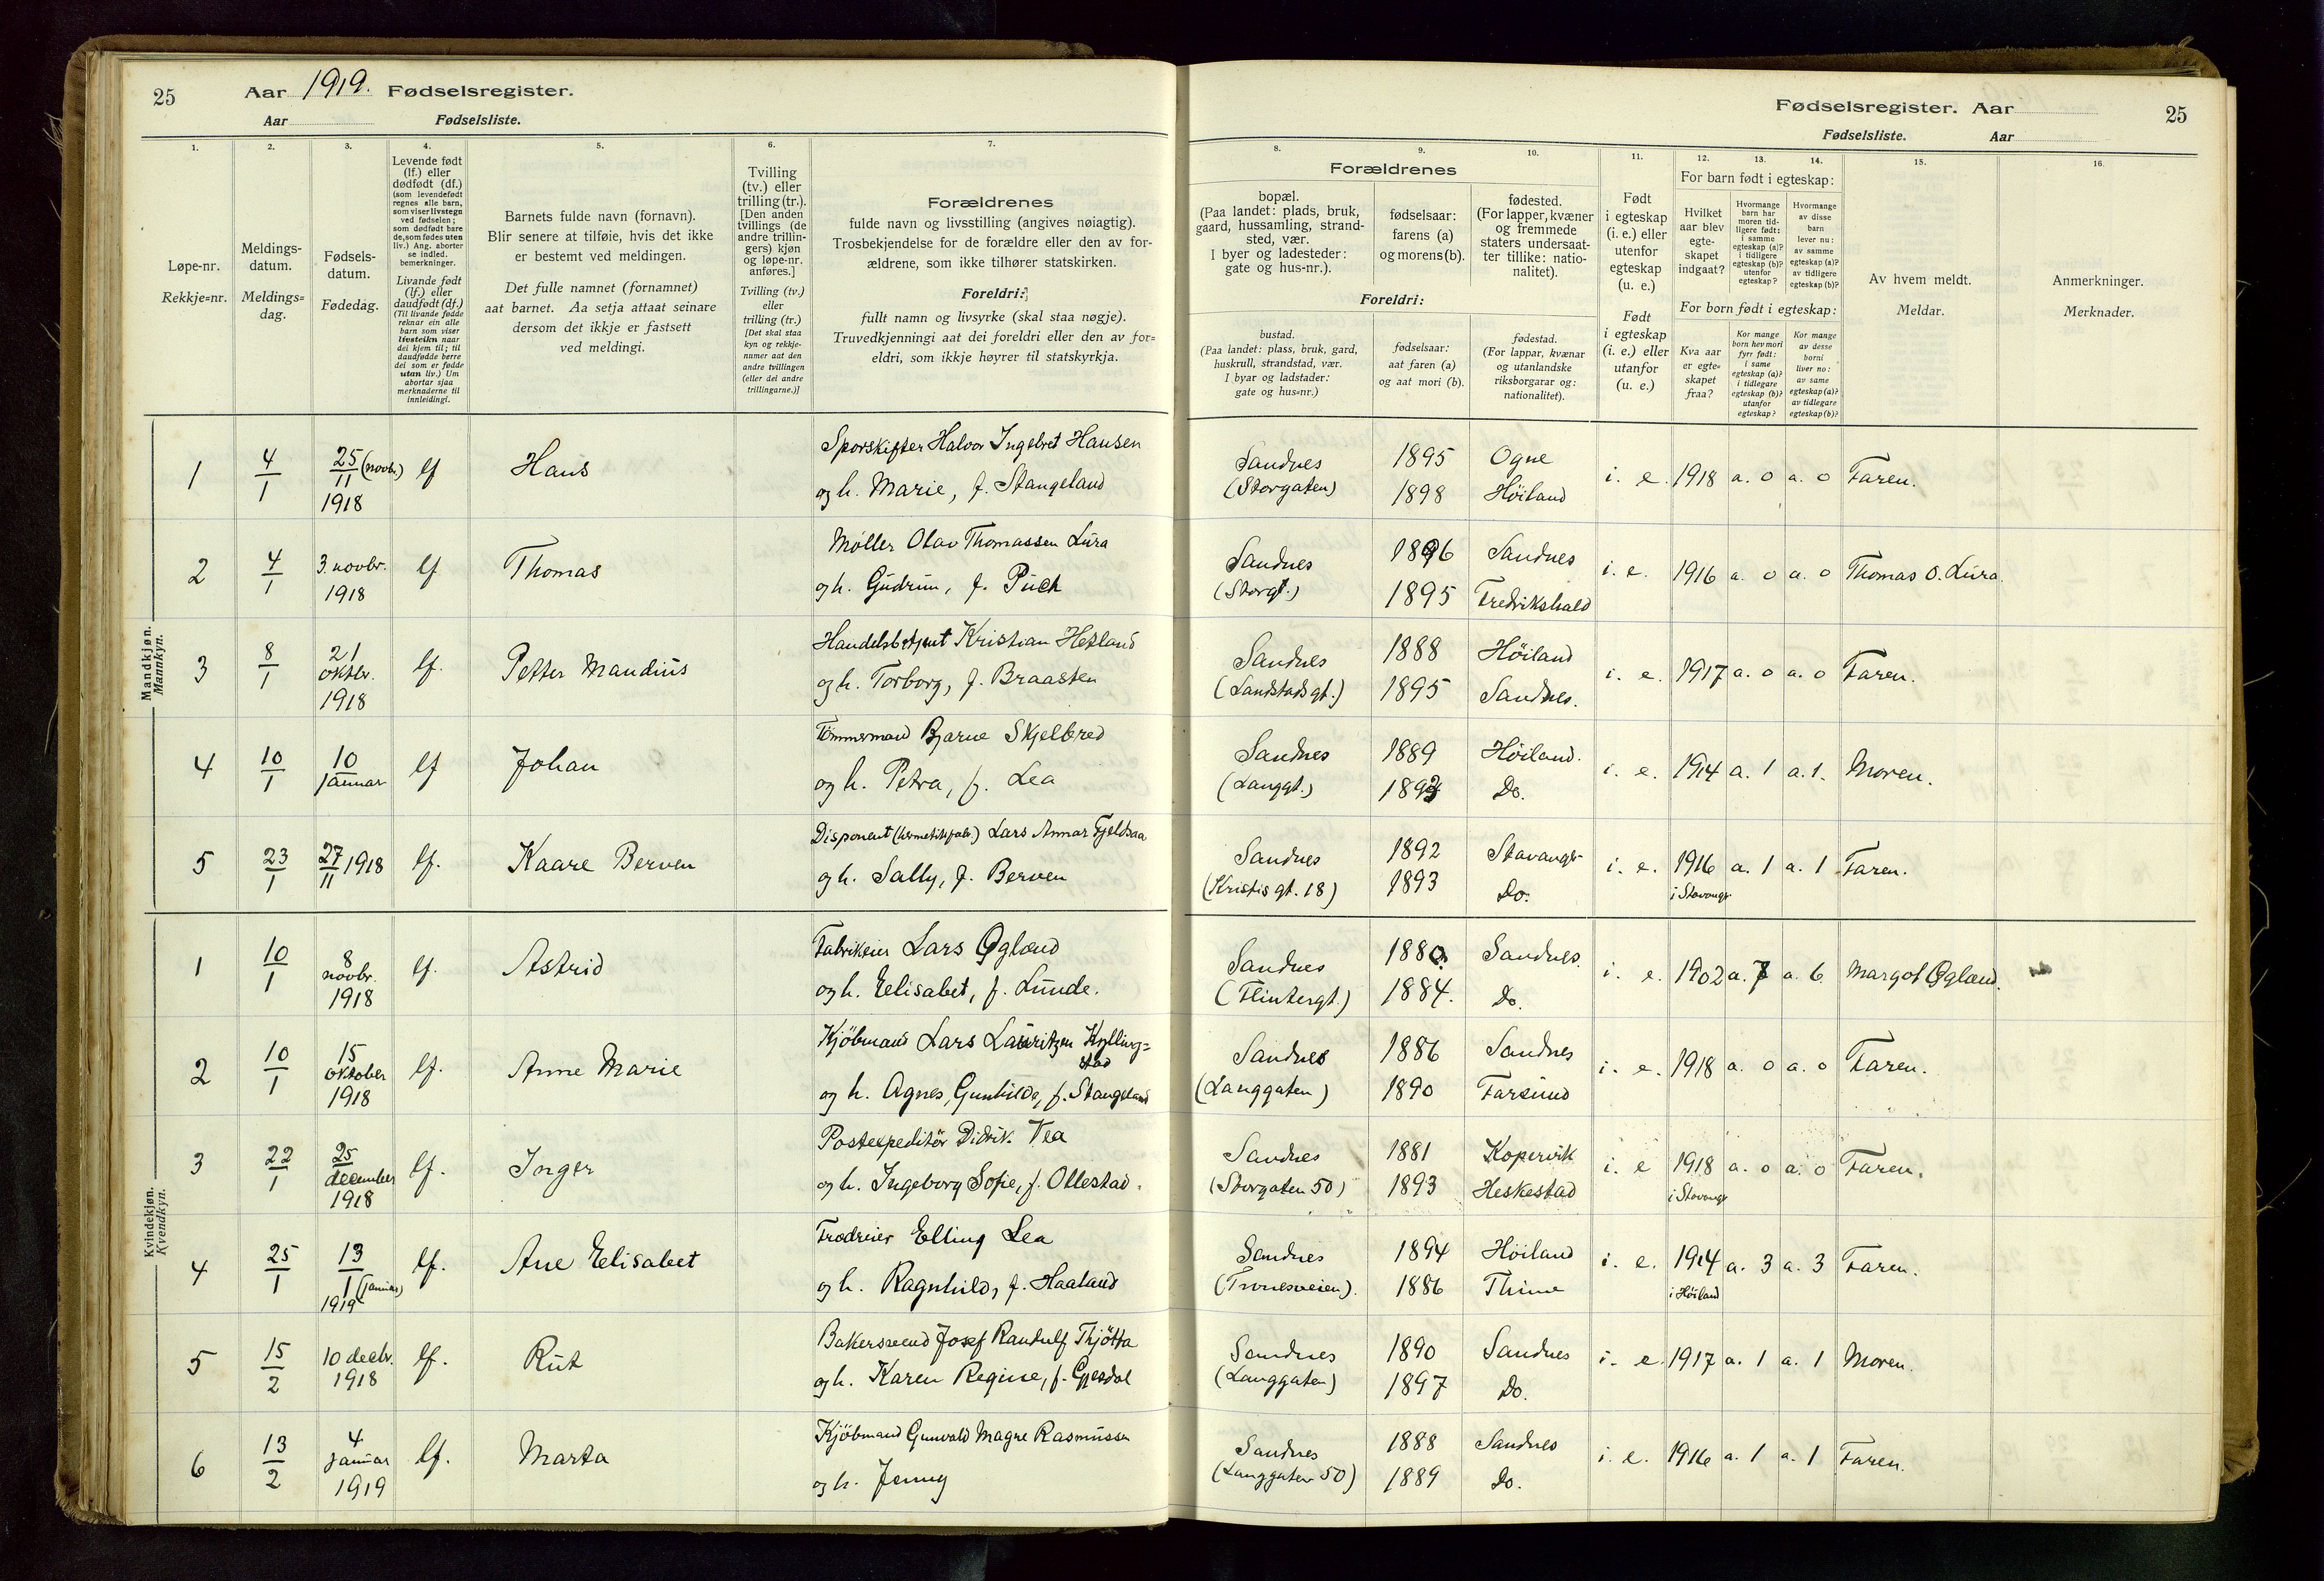 25
Aar 1919. Fødselsregister.
Aar Fødselsliste.
Fødselsregister. Aar
25
Fødselsliste. Aar
1.
2.
3.
4.
5.
6.
7.
8.
9.
10.
11.
12.
13.
14.
15.
16.
Løpe-nr.
Rekkje=nr.
Meldings-
datum.
Meldings=
dag.
Fødsels-
datum.
Fødedag.
Levende født
(lf.) eller
dødfødt (df.)
(som levendefødt
regnes alle barn,
som viser livstegn
ved fødselen;
som dødfødt bare
de, som fødes uten
liv.) Ang. aborter
se indled.
bemerkninger.
Livande født
(lf.) eller
daudfødt (df.)
(Til livande fødde
reknar ein alle
barn som viser
livsteikn naar
dei kjem til; til
daudfødde berre
dei som er fødde
utan liv.) Um
abortar sjaa
merknaderne til
innleidingi.
Barnets fulde navn (fornavn).
Blir senere at tilføie, hvis det ikke
er bestemt ved meldingen.
Det fulle namnet (fornamnet)
aat barnet. Aa setja attaat seinare
dersom det ikkje er fastsett
ved meldingi.
Tvilling
(tv.) eller
trilling (tr.).
[Den anden
tvillings (de
andre trillin-
gers) kjøn
og løpe-nr.
anføres.]
Tvilling (tv.)
eller
trilling (tr.)
[Det skal staa
kyn og rekkje-
numer aat den
andre tvillingen
(eller dei andre
trillingarne.)]
Forældrenes
fulde navn og livsstilling (angives nøiagtig).
Trosbekjendelse for de forældre eller den av for-
ældrene, som ikke tilhører statskirken.
Foreldri:
fullt namn og livsyrke (skal staa nøgje).
Truvedkjenningi aat dei foreldri eller den av for=
eldri, som ikkje høyrer til statskyrkja.
Forældrenes
bopæl.
(Paa landet: plads, bruk,
gaard, hussamling, strand-
sted, vær.
I byer og ladesteder:
gate og hus-nr.).
fødselsaar:
farens (a)
og morens (b).
fødested.
(For lapper, kvæner
og fremmede
staters undersaat-
ter tillike: natio-
nalitet).
Foreldri:
bustad.
(Paa landet: plass, bruk, gard,
huskrull, strandstad, vær.
I byar og ladstader:
gate og hus=nr.)
fødselsaar:
aat faren (a)
og aat mori (b).
fødestad.
(For lappar, kvænar
og utanlandske
riksborgarar og:
nationalitet).
Født
i egteskap
(i. e.) eller
utenfor
egteskap
(u. e.)
Født
i egteskap
(i. e.) eller
utanfor
(u. e.)
For barn født i egteskap:
Hvilket
aar blev
egte-
skapet
indgaat?
Hvormange
barn har
moren tid-
ligere født:
i samme
egteskap (a)?
i tidligere
egteskap (b)?
utenfor
egteskap?
Hvormange
av disse
barn
lever nu:
av samme
egteskap (a)?
av tidligere
egteskap (b)?
For born født i egteskap:
Kva aar
er egte=
skapet
fraa?
Kor mange
born hev mori
fyrr født:
i same
egteskap (a)?
i tidlegare
egteskap (b)?
utanfor
egteskap?
Kor mange
av desse
borni
liver no:
av same
egteskap (a)?
av tidlegare
egteskap (b)?
Av hvem meldt.
Meldar.
Anmerkninger.
Merknader.
Mandkjøn.
Mannkyn.
1 4/1 25/11 (novbr.) 1918 lf Hans
Sporskifter Halvor Ingebret Hansen
og h. Marie, f. Stangeland
Sandnes (Storgaten) 1895 1898 Ogne Höiland i. e. 1918 a. 0 a. 0 Faren.
2 4/1 3. novbr. 1918 lf Thomas
Møller Olav Thomassen Lura
og h. Gudrun, f. Puch
Sandnes (Storgt.) 1896 1895 Sandnes Fredrikshald i. e. 1916 a. 0 a. 0 Thomas O. Lura.
3 8/1 21 oktbr. 1918 lf. Petter Mandius
Handelsbetjent Kristian Hetland
og h. Torborg, f. Braasten
Sandnes (Landstadsgt.) 1888 1895 Höiland Sandnes. i. e. 1917 a. 0 a. 0 Faren.
4 10/1 10 januar lf Johan
Tömmermand Bjarne Skjelbred
og h. Petra, f. Lea
Sandnes (Langgt.) 1889 Höiland. Do. i. e. 1914 a. 1 a. 1. Moren.
5 23/1 27/11 1918 lf. Kaare Berven
Disponent (hermetikfabr.) Lars Annar Fjeldsaa
og h. Sally, f. Berven
Sandnes (Kristis gt. 18) 1892 1893 Stavanger Do. i. e. 1916 i Stavanger a. 1 a. 1 Faren.
Kvindekjøn.
Kvendkyn.
1 10/1 8 novbr. 1918 lf. Astrid
Fabrikeier Lars Øglænd
og h. Elisabet, f. Lunde.
Sandnes (Flintergt.) 1880 1884. Sandnes. Do. i. e. 1902 a. 7 a. 6. Margot Øglænd.
2 10/1 15 oktober 1918 lf. Anne Marie
Kjöbmand Lars Lauritzen Kylling=
stad
og h. Agnes, Gunhilde, f. Stangeland
Sandnes (Langgaten) 1886 1890 Sandnes Farsund i. e. 1918 a. 0 a. 0 Faren.
3 22/1 25 december 1918 lf. Inger
Postexpeditör Didrik Vea
og h. Ingeborg Sofie, f. Ollestad.
Sandnes (Storgaten 50) 1881 1893 Kopervik Heskestad i. e 1918 i Stavanger a. 0 a. 0 Faren.
4 25/1 13/1 (januar) 1919 lf. Ane Elisabet
Elling Lea
og h. Ragnhild, f. Haaland
Sandnes (Tronesveien). 1894 1886 Höiland Thime i. e. 1914 i Höiland a. 3 a. 3 Faren.
5 15/2 10 decbr. 1918 lf. Rut
Bakersvend Josef Randulf Thjötta
og h. Karen Regine, f. Gjesdal
Sandnes (Langgaten) 1890 1897 Sandnes Do. i. e. 1917 a. 1 a. 1 Moren.
6 13/2 4 januar 1919 lf. Marta
Kjöbmand Gunvald Magne Rasmussen
og h. Jenny
Sandnes (Langgaten 50) 1888 1889 Sandnes Do. i. e. 1916 a. 1 a. 1 Faren.